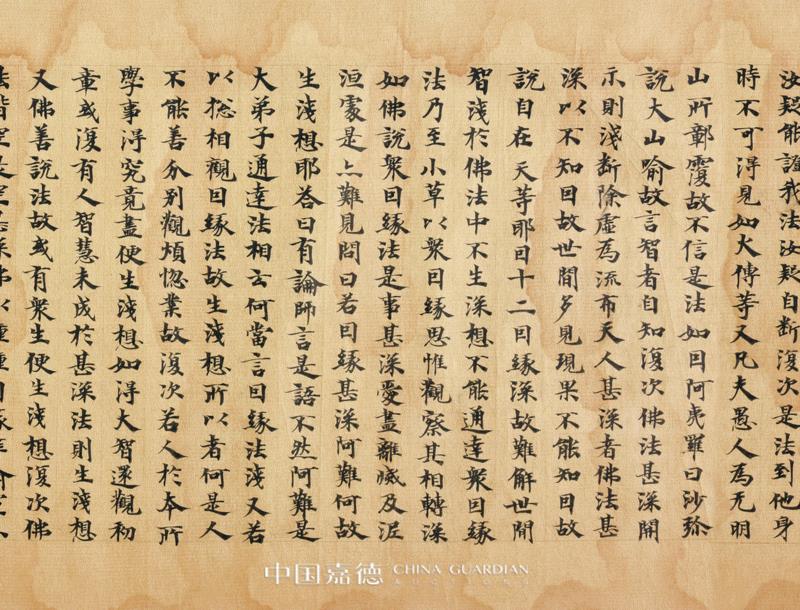 汝疑能誰我法汝疑自斷復次是法到他身
時不可得見如火傳等又凡夫愚人為无明
山所鄣覆故不信是法如因阿夷羅曰沙弥
說大山喻故言智者自知復次佛法甚深開
示則淺斷除虛為流布天人甚深者佛法甚
深以不知因故世間多見現果不能知因故
說自在天等耶因十二因緣深故難解世間
智淺於佛法中不生深想不能通達衆因緣
法乃至小草以衆因緣思惟觀察其相轉深
如佛說衆因緣法是事甚深愛盡離滅及泥
洹處是亦難見問曰若因緣甚深阿難何故
生淺想耶荅曰有論師言是語不然阿難是
大弟子通達法相云何當言因緣法淺又若
以揔相觀因緣法故生淺想所以者何是人
不能善分別觀煩惚業故復次若人於本所
學事得究竟盡便生淺想如得大智還觀初
章或復有人智慧未成於甚深法則生淺想
又佛善說法故或有衆生便生淺想復次佛
法皆空
中国嘉德 CHINA GUARDIAN
AUCTIONS